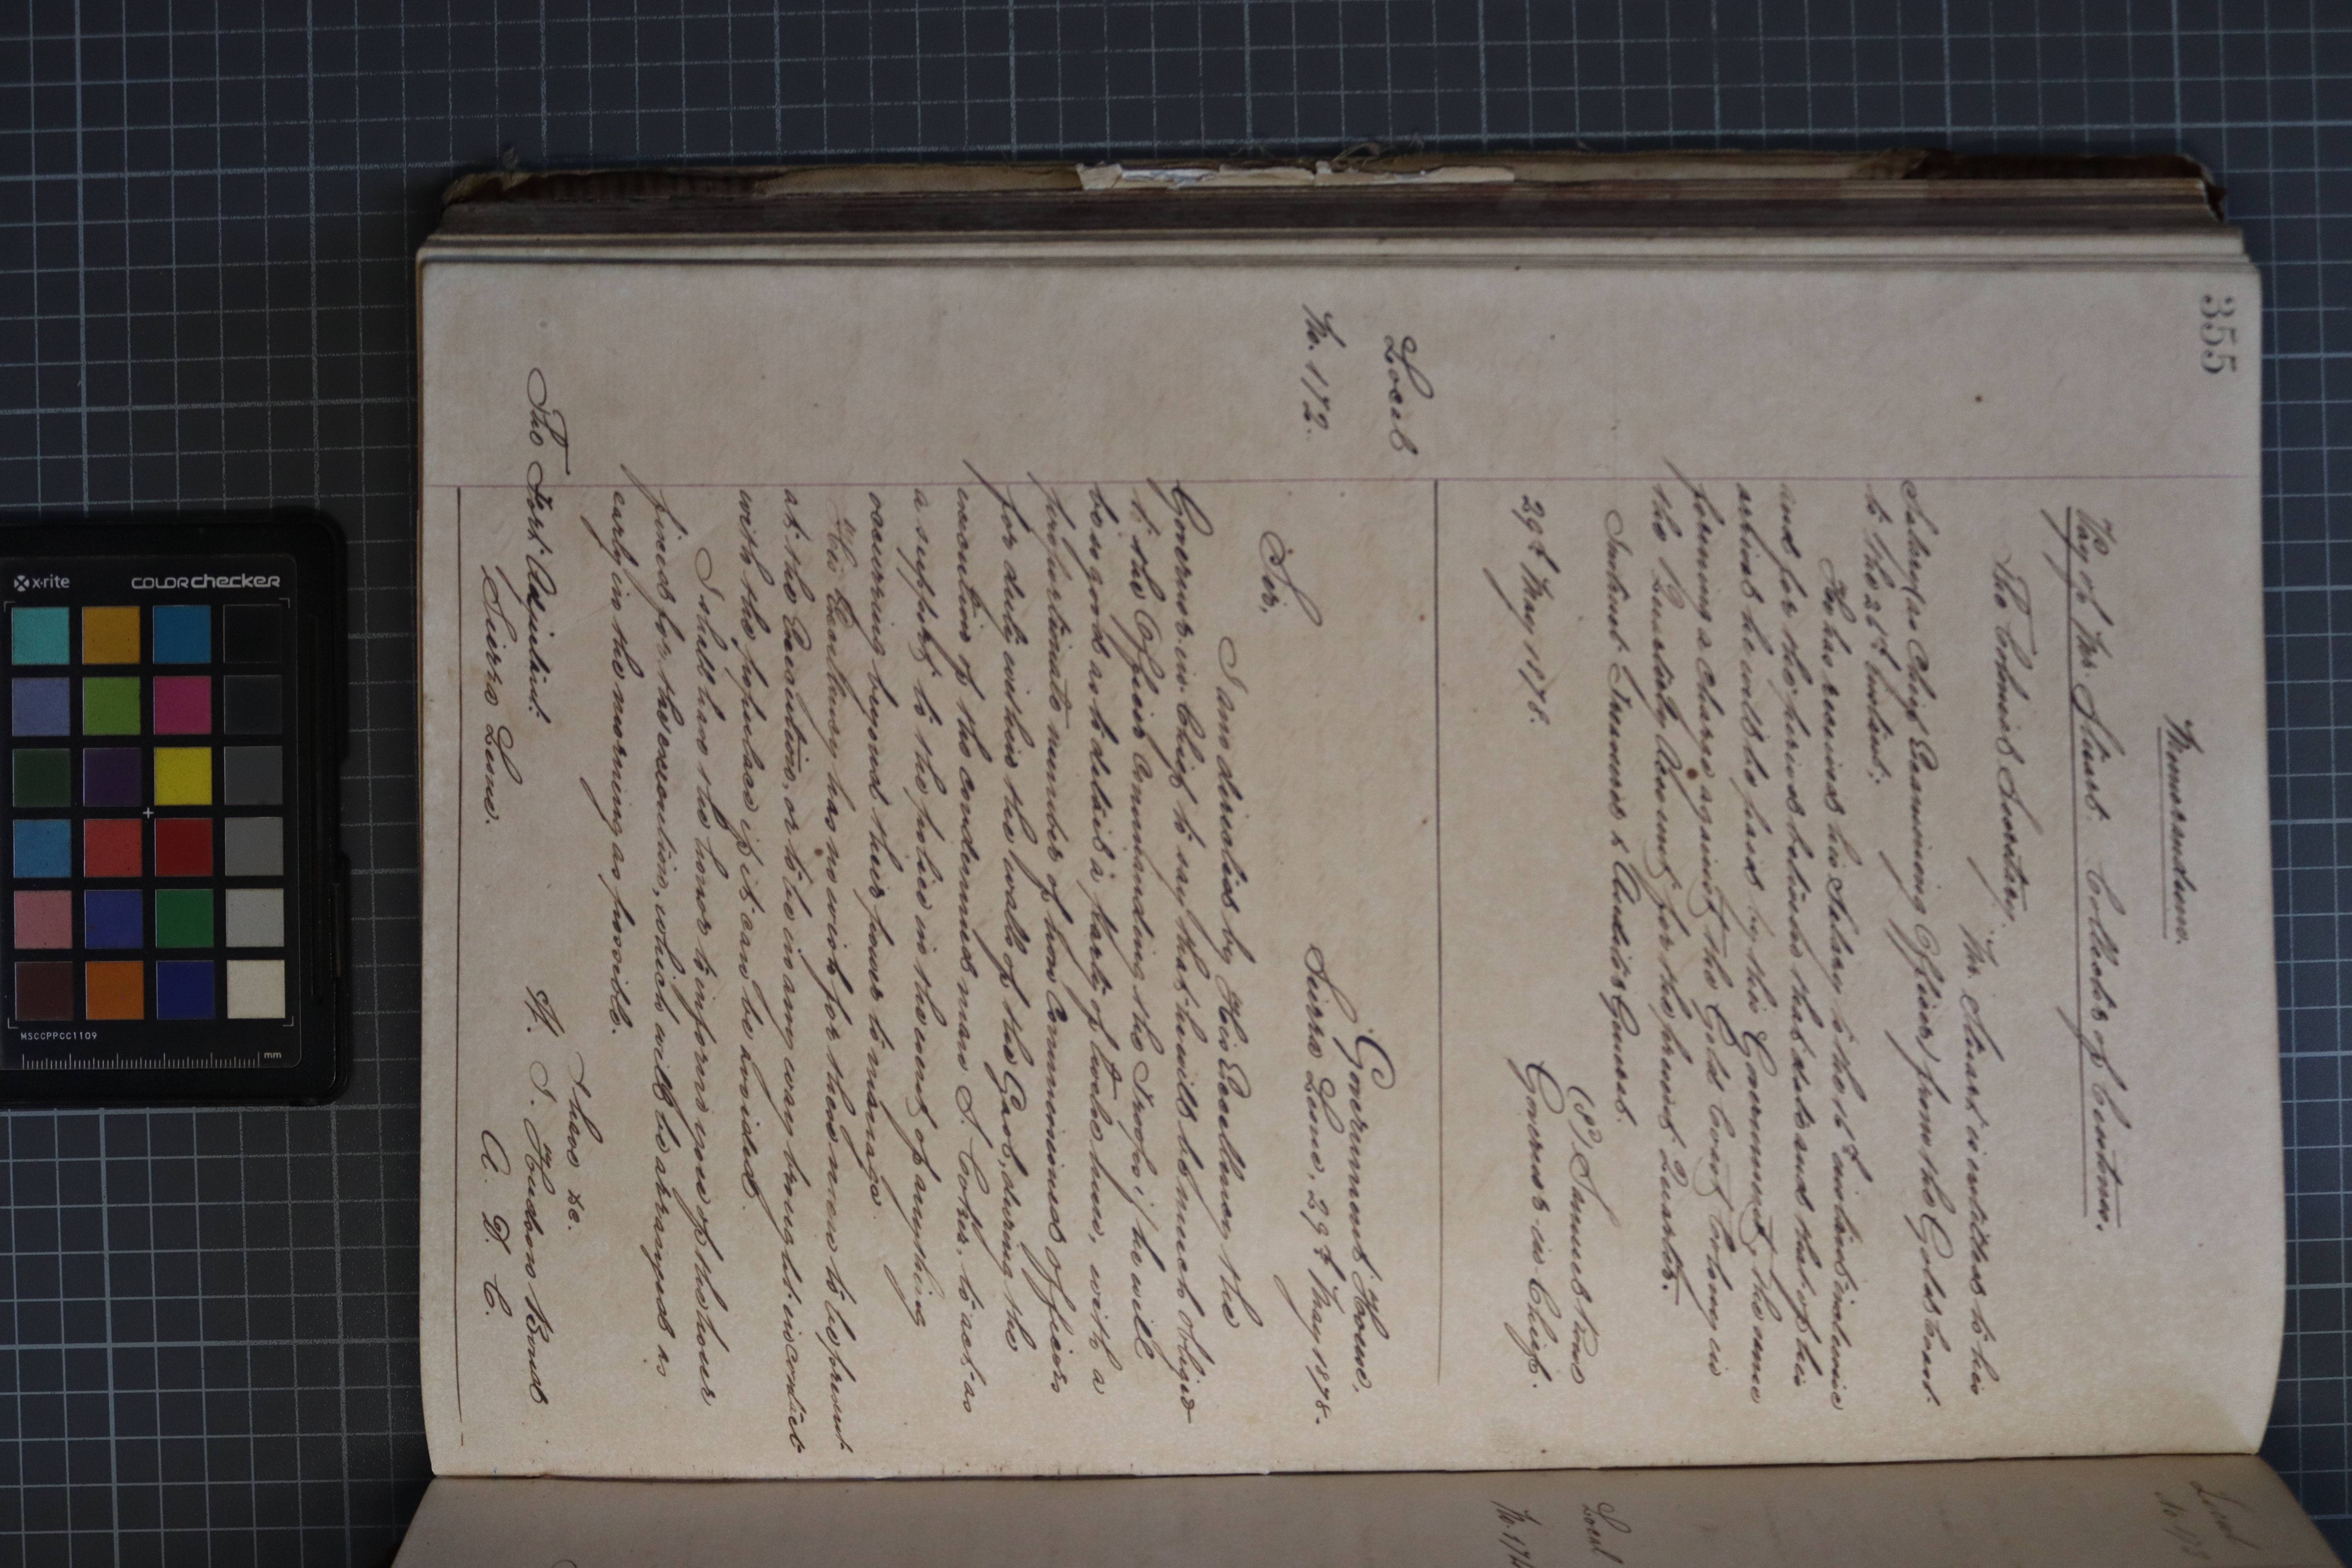 355
Memorandum.
Pay of Mr. Stuart Collector of Customs.
The Colonial Secretary.
Mr. Stuart is entitled to his
Salary (as Chief Examining Officer) from the Gold Coast
to the 25th instant.
He has received his Salary to the 16th instant inclusive
and for the period between that date and that of his
arrival he will be paid by this Government, the same
forming a charge against the Gold Coast Colony in
the Quarterly Account for the present Quarter.
Instruct Treasurer & Auditor General.
(Sd) Samuel Rowe
Governor in Chief.
29th May 1878.
Local
No. 172.
Government House,
Sierra Leone, 29th May 1878.
Sir,
I am directed by His Excellency the
Governor in Chief to say that he will be much obliged
to the Officer Commanding the Troops if he will
be so good as to detail a party of twelve men, with a
proportionate number of non Commissioned officers
for duty within the walls of the Gaol, during the
execution of the condemned man S. to act as
a support to the police in the event of anything
occurring beyond their power to manage.
His Excellency has no wish for these men to be present
at the Execution, or to be in any way brought in contact
with the populace if it can be avoided.
I shall have the honor to inform you of the hour
fixed for the execution, which will be arranged as
early in the morning as possible.
I have &c.
The Fort Adjutant. H. I. Hudson
Sierra Leone. A. D. C.
Local
Local
COLORchecker
x-rite
MSCCPPCC1109
mm